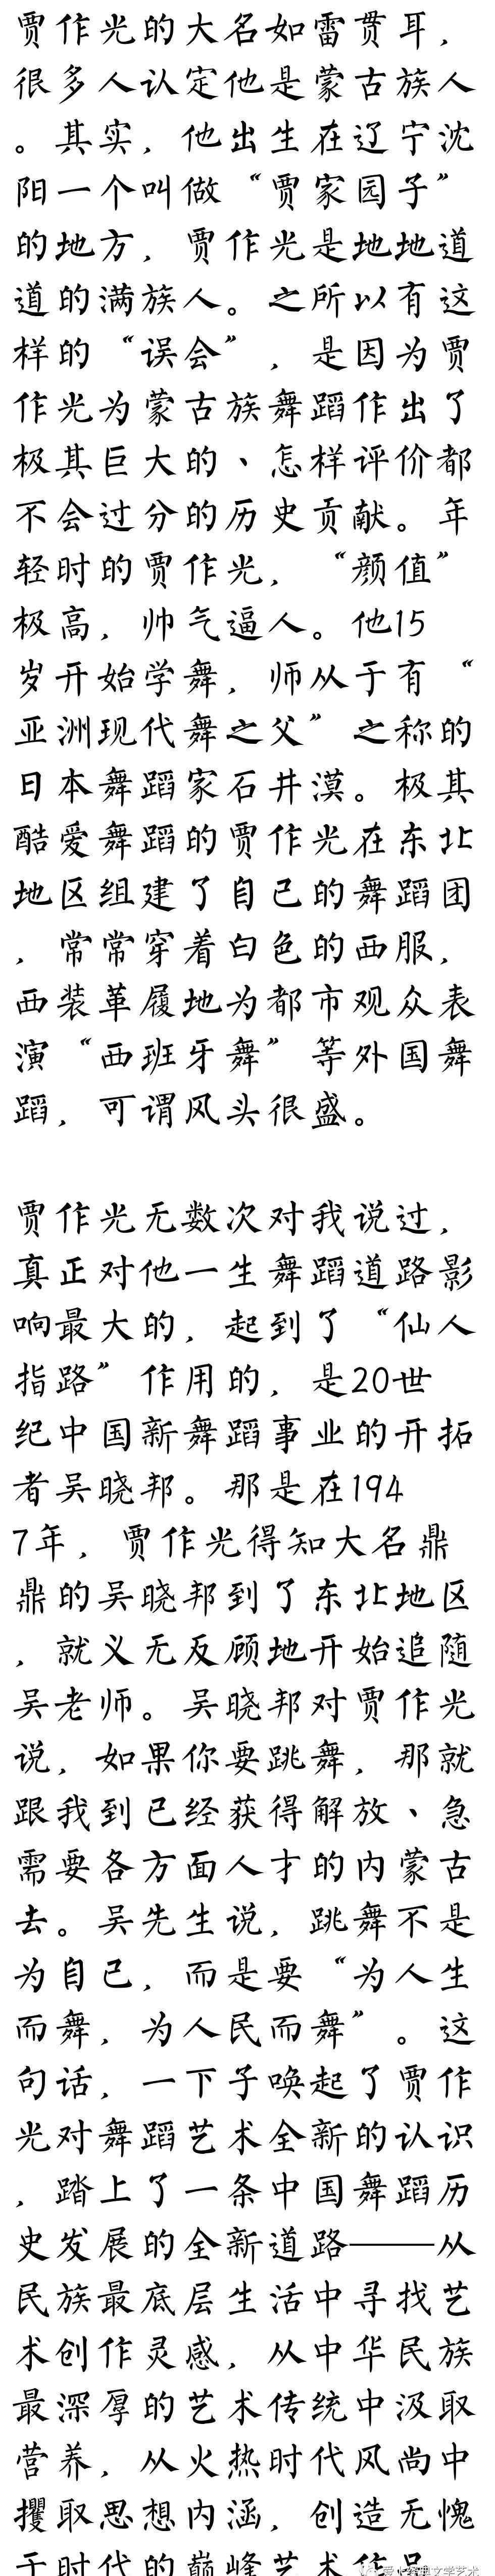 贾作光的大名如雷贯耳，
很多人认定他是蒙古族人
。其实，他出生在辽宁沈
阳一个叫做“贾家园子”
的地方，贾作光是地地道
道的满族人。之所以有这
样的“误会”，是因为贾
作光为蒙古族舞蹈作出了
极其巨大的、怎样评价都
不会过分的历史贡献。年
轻时的贾作光，“颜值”
极高，帅气逼人。他15
岁开始学舞，师从于有“
亚洲现代舞之父”之称的
日本舞蹈家石井漠。极其
酷爱舞蹈的贾作光在东北
地区组建了自己的舞蹈团
，常常穿着白色的西服，
西装革履地为都市观众表
演“西班牙舞”等外国舞
蹈，可谓风头很盛。
贾作光无数次对我说过，
真正对他一生舞蹈道路影
响最大的，起到了“仙人
指路”作用的，是20世
纪中国新舞蹈事业的开拓
者吴晓邦。那是在194
7年，贾作光得知大名鼎
鼎的吴晓邦到了东北地区
，就义无反顾地开始追随
吴老师。吴晓邦对贾作光
说，如果你要跳舞，那就
跟我到已经获得解放、急
需要各方面人才的内蒙古
去。吴先生说，跳舞不是
为自己，而是要“为人生
而舞，为人民而舞”。这
句话，一下子唤起了贾作
光对舞蹈艺术全新的认识
，踏上了一条中国舞蹈历
史发展的全新道路——从
民族最底层生活中寻找艺
术创作灵感，从中华民族
最深厚的艺术传统中汲取
营养，从火热时代风尚中
攫取思想内涵，创造无愧
于时代的巅峰艺术作品